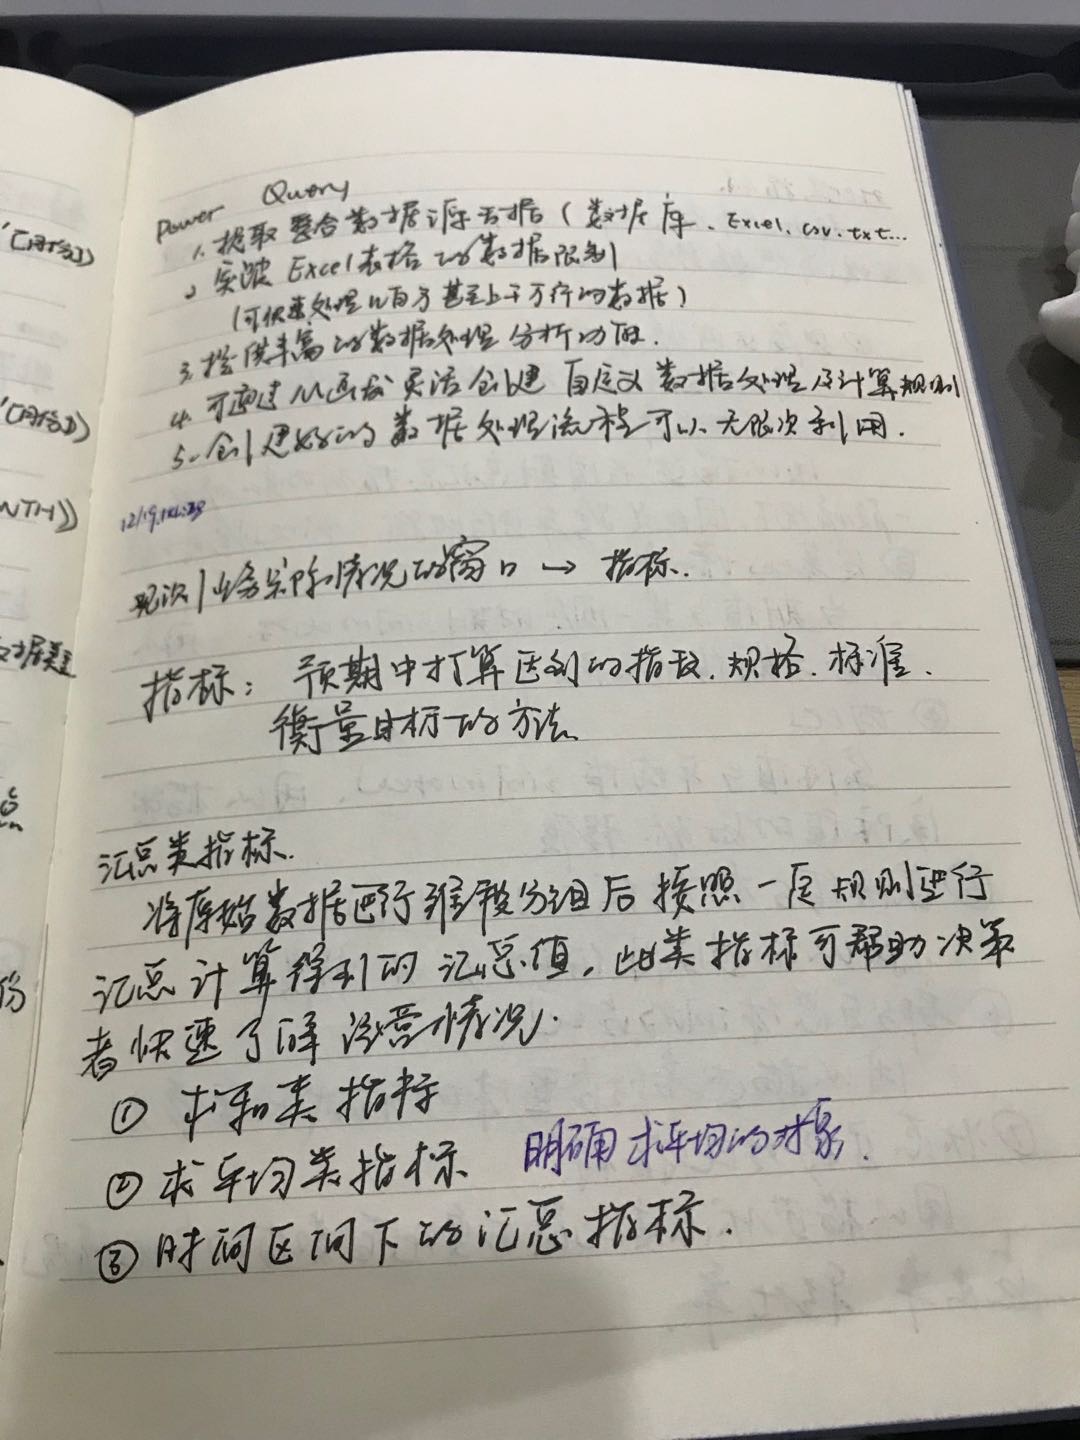 Power Query
1. 提取整合数据源数据（数据库、Excel、csv、txt...
2. 突破Excel表格的数据限制
（可快速处理几百万甚至上千万行的数据）
3. 提供丰富的数据处理分析功能.
4. 可通过M函数灵活创建自定义数据处理及计算规则
5. 创建好的数据处理流程可以无限次利用.
观测业务实际情况的窗口 → 指标.
指标： 预期中打算达到的指数、规格、标准.
衡量目标的方法
汇总类指标.
将原始数据进行维度分组后按照一定规则进行
汇总计算得到的汇总值，此类指标可帮助决策
者快速了解运营情况.
① 求和类指标
② 求平均类指标 明确求平均的对象.
③ 时间区间下的汇总指标.